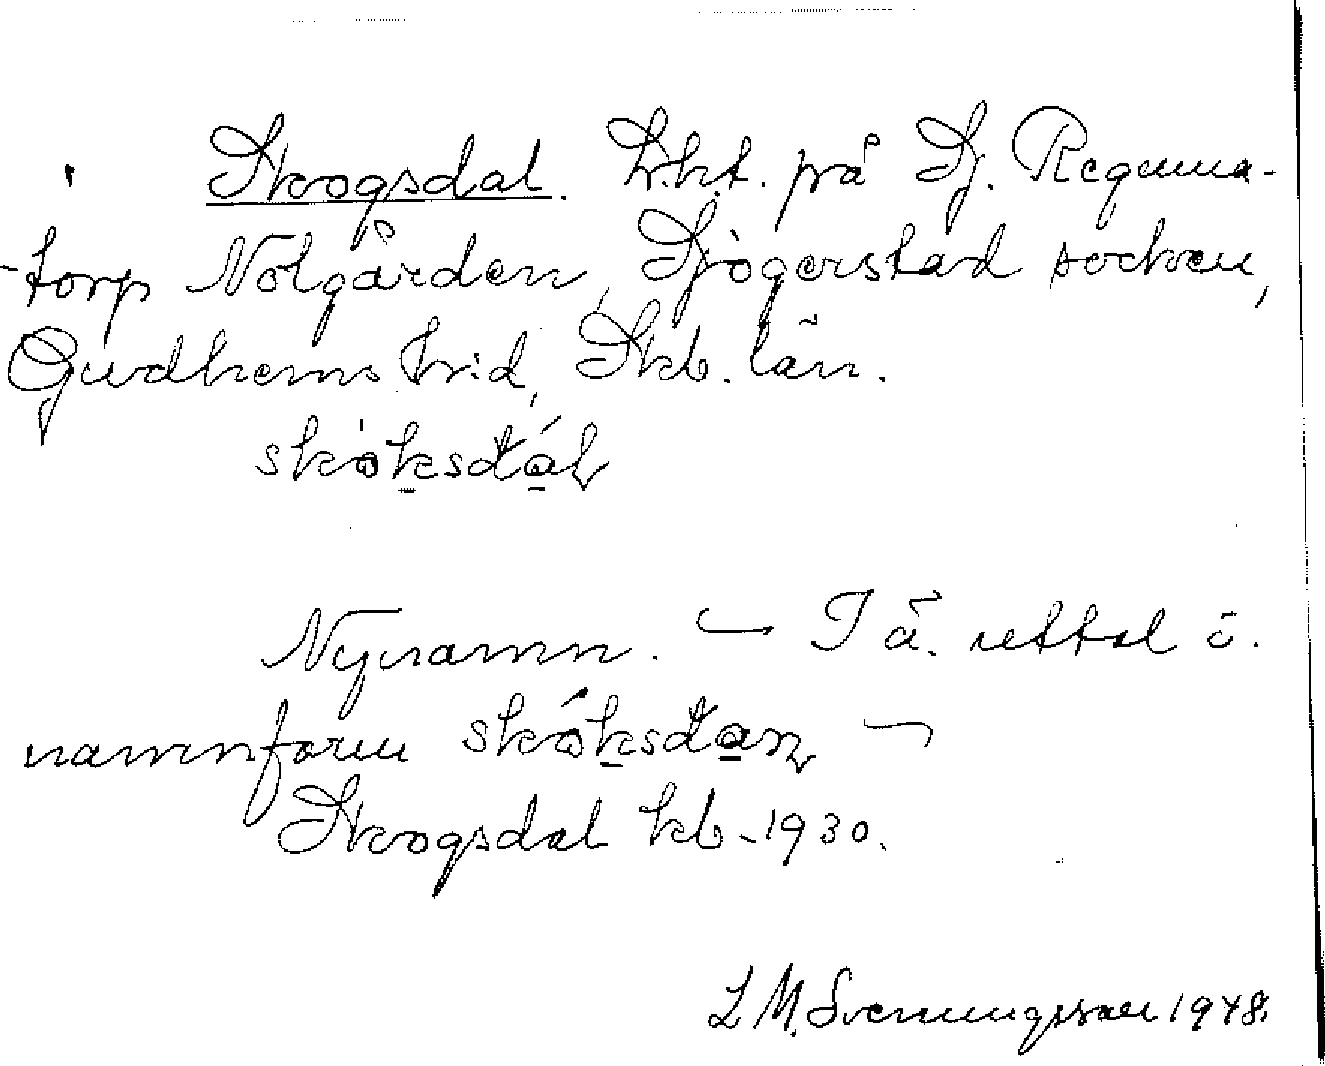 Skogsdal. Lht. på Sj. Reguma-
-torp Nolgården, Sjögerstad socken,
Gudhems hd, Skb. län.
skoksdal
Nynamn. — I ä. uttal ö.
namnform skoksdan —
Skogsdal kb -1930.
L M. Svenungsson 1948.